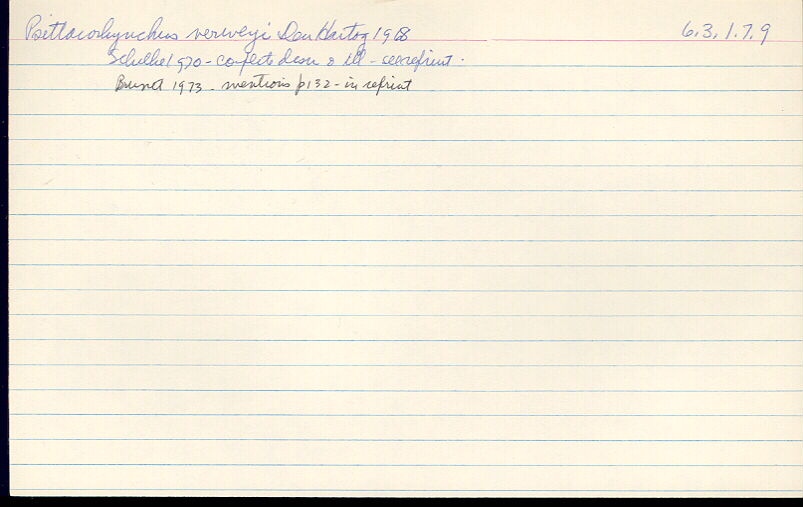 Psittacorhynchus verweyi Den Hartog 1968 6.3.1.7.9
Schilke 1970 - complete descr & ill - see reprint.
Brunet 1973 - mentions p132 - in reprint